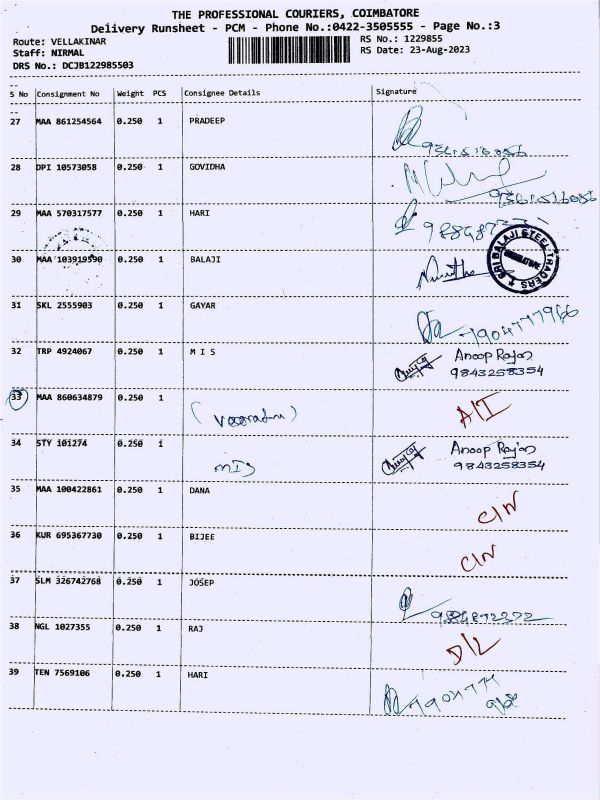 THE PROFESSIONAL COURIERS, COIMBATORE
Delivery Runsheet - PCM - Phone No.:0422-3505555 - Page No.:3
Route: VELLAKINAR RS No.: 1229855
Staff: NIRMAL RS Date: 23-Aug-2023
DRS No.: DCJB122985503
S No Consignment No Weight PCS Consignee Details Signature
27 MAA 861254564 0.250 1 PRADEEP
28 DPI 10573058 0.250 1 GOVIDHA
29 MAA 570317577 0.250 1 HARI
SRI BALAJI STEEL TRADERS
30 MAA 103919590 0.250 1 BALAJI
31 SKL 2555903 0.250 1 GAYAR
7904777966
32 TRP 4924067 0.250 1 M I S Anoop Rajan
9843258354
33 MAA 860634879 0.250 1 A/I
34 STY 101274 0.250 1 Anoop Rajan
MIS 9843258354
35 MAA 100422861 0.250 1 DANA C/N
36 KUR 695367730 0.250 1 BIJEE C/N
37 SLM 326742768 0.250 1 JOSEP
38 NGL 1027355 0.250 1 RAJ D/L
39 TEN 7569106 0.250 1 HARI